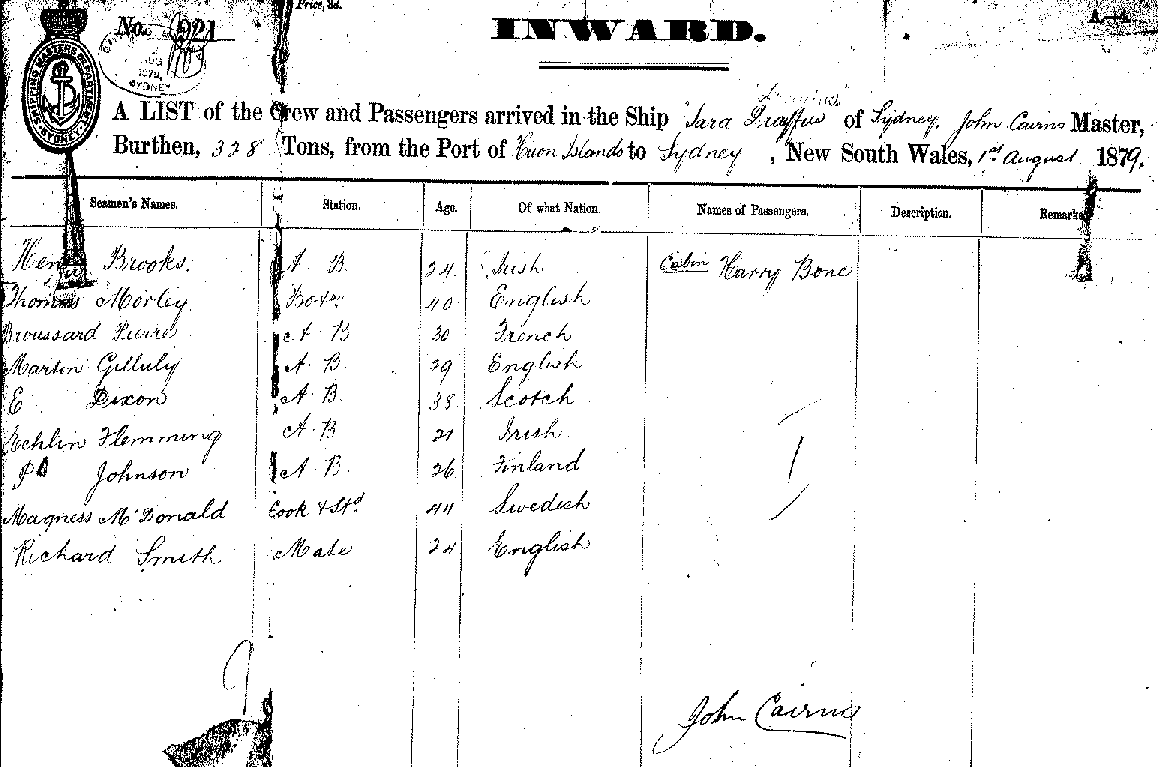 Price, 3d.
No. 921
INWARD.
A LIST of the Crew and Passengers arrived in the Ship Sara of Sydney, John Cairns Master,
Burthen, 328 Tons, from the Port of Huon Islands to Sydney, New South Wales, 1st August 1879.
Seamen's Names. Station. Age. Of what Nation. Names of Passengers. Description. Remarks
Henry Brooks. A B. 24 Irish Cabin Harry Bone
Thomas Morley. 40 English
Broussard Pierre A B 30 French
Martin Gilluly A B. 29 English
E Dixon A B. 38 Scotch
Echlin Flemming A B 21 Irish
Johnson A B. 26 Finland
Magness McDonald Cook & Std 44 Swedish
Richard Smith Mate 24 English
John Cairns